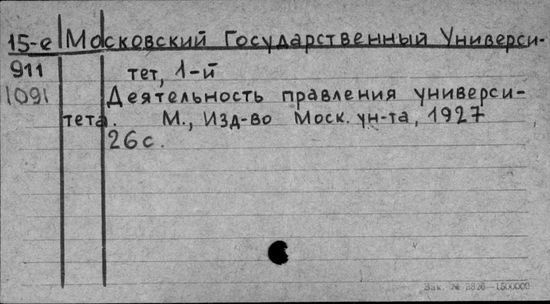 15-е Московский Государственный Универси-
911 тет, 1-й
1091 Деятельность правления универси-
тета. М., Изд-во Моск. ун-та, 1927
26с.
Зак. №